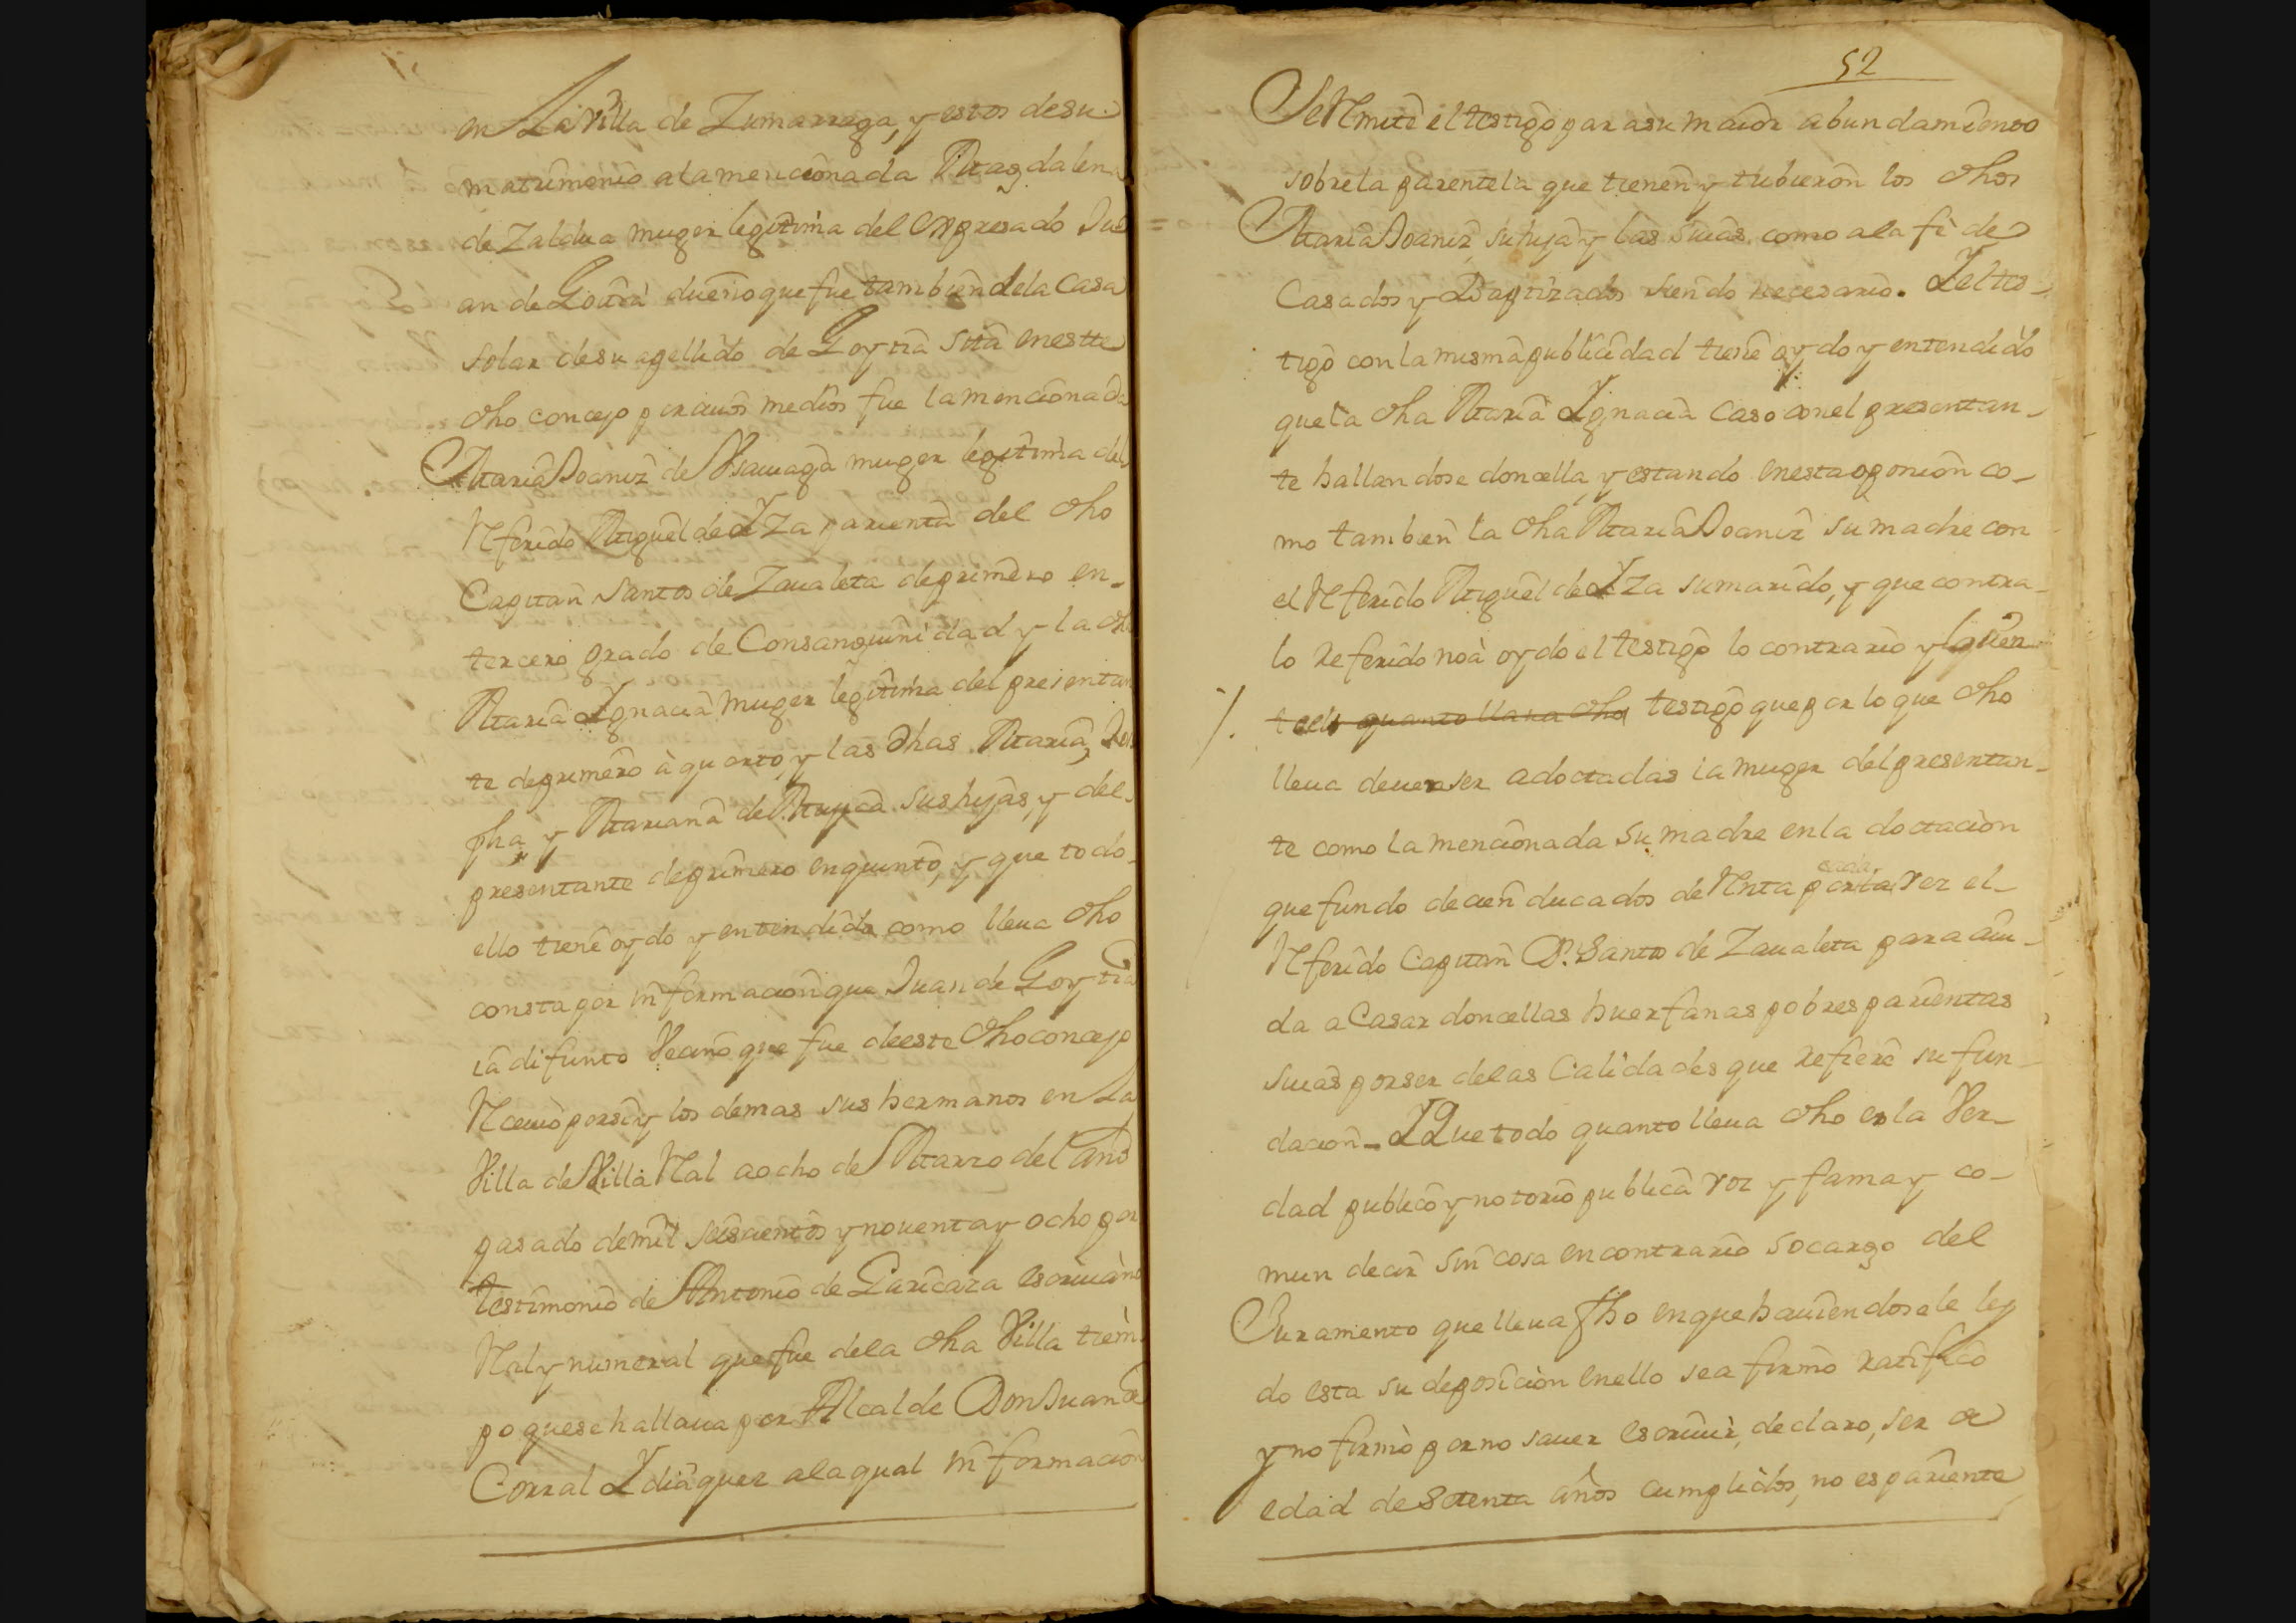 en La Villa de Zumarraga, y estos de su
matrimonio a la mencionada Magdalena
de Zaldua muger legitima del expresado Ju
an de Goitia dueño que fue tambien de la Casa
solar de su apellido de Goytia sita en estte
dho concejo por cuios medios fue la mencionada
Maria Joaniz de muger legitima del
referido Miguel de Yza parienta del dho
Capitan Santos de Zaualeta de primero en
tercero grado de Consanguinidad y la dha
Maria Ygnacia muger legitima del presentan
te de primero à quarto, y las dhas Maria, Jose
pha y Mariana de Mujica sus hijas, y del
presentante de primero en quinto, y que todo
ello tiene oydo y entendido como lleua dho
consta por informacion que Juan de Goytia
ia difunto Vecino que fue de este dho concejo
Reciuio por si y los demas sus hermanos en La
Villa de Villa Real a ocho de Marzo del año
pasado de mil seiscientos y nouenta y ocho por
testimonio de Antonio de Garicaza escriuano
Real y numeral que fue de la dha Villa tiem
po que se hallaua por Alcalde Don Juan de
Corral Ydiaquez a la qual informacion
52
Se Remite el testigo para su maior abundamiento
sobre la parentela que tienen y tubieron los dhos
Maria Joaniz, su hija y las suias como a la fè de
Casados y Baptizados siendo necesario. Y el tes-
tigo con la misma publicidad tiene oydo y entendido
que la dha Maria Ygnacia caso con el presentan-
te hallandose doncella y estando en esta oponion co-
mo tambien la dha Maria Joaniz su madre con
el Referido Miguel de Yza su marido, y que contra
lo Referido no à oydo el testigo lo contrario y
quanto lleua dho testigo que por lo que dho
lleua deuen ser adoctadas la muger del presentan-
te como la mencionada su madre en la doctacion
que fundo de cien ducados de Renta por cada vez el
Referido Capitan D. Santos de Zaualeta para aiu-
da a Casar doncellas huerfanas pobres parientas
suias por ser de las Calidades que Refiere su fun-
dacion - Y Que todo quanto lleua dho es la Ver-
dad publico y notorio publica voz y fama y co-
mun decir sin cosa en contrario so cargo del
Juramento que lleua fho en que hauiendosele ley
do esta su deposicion en ello se afirmò ratificò
y no firmò por no sauer escriuir, declaro, ser de
edad de setenta años cumplidos, no es pariente